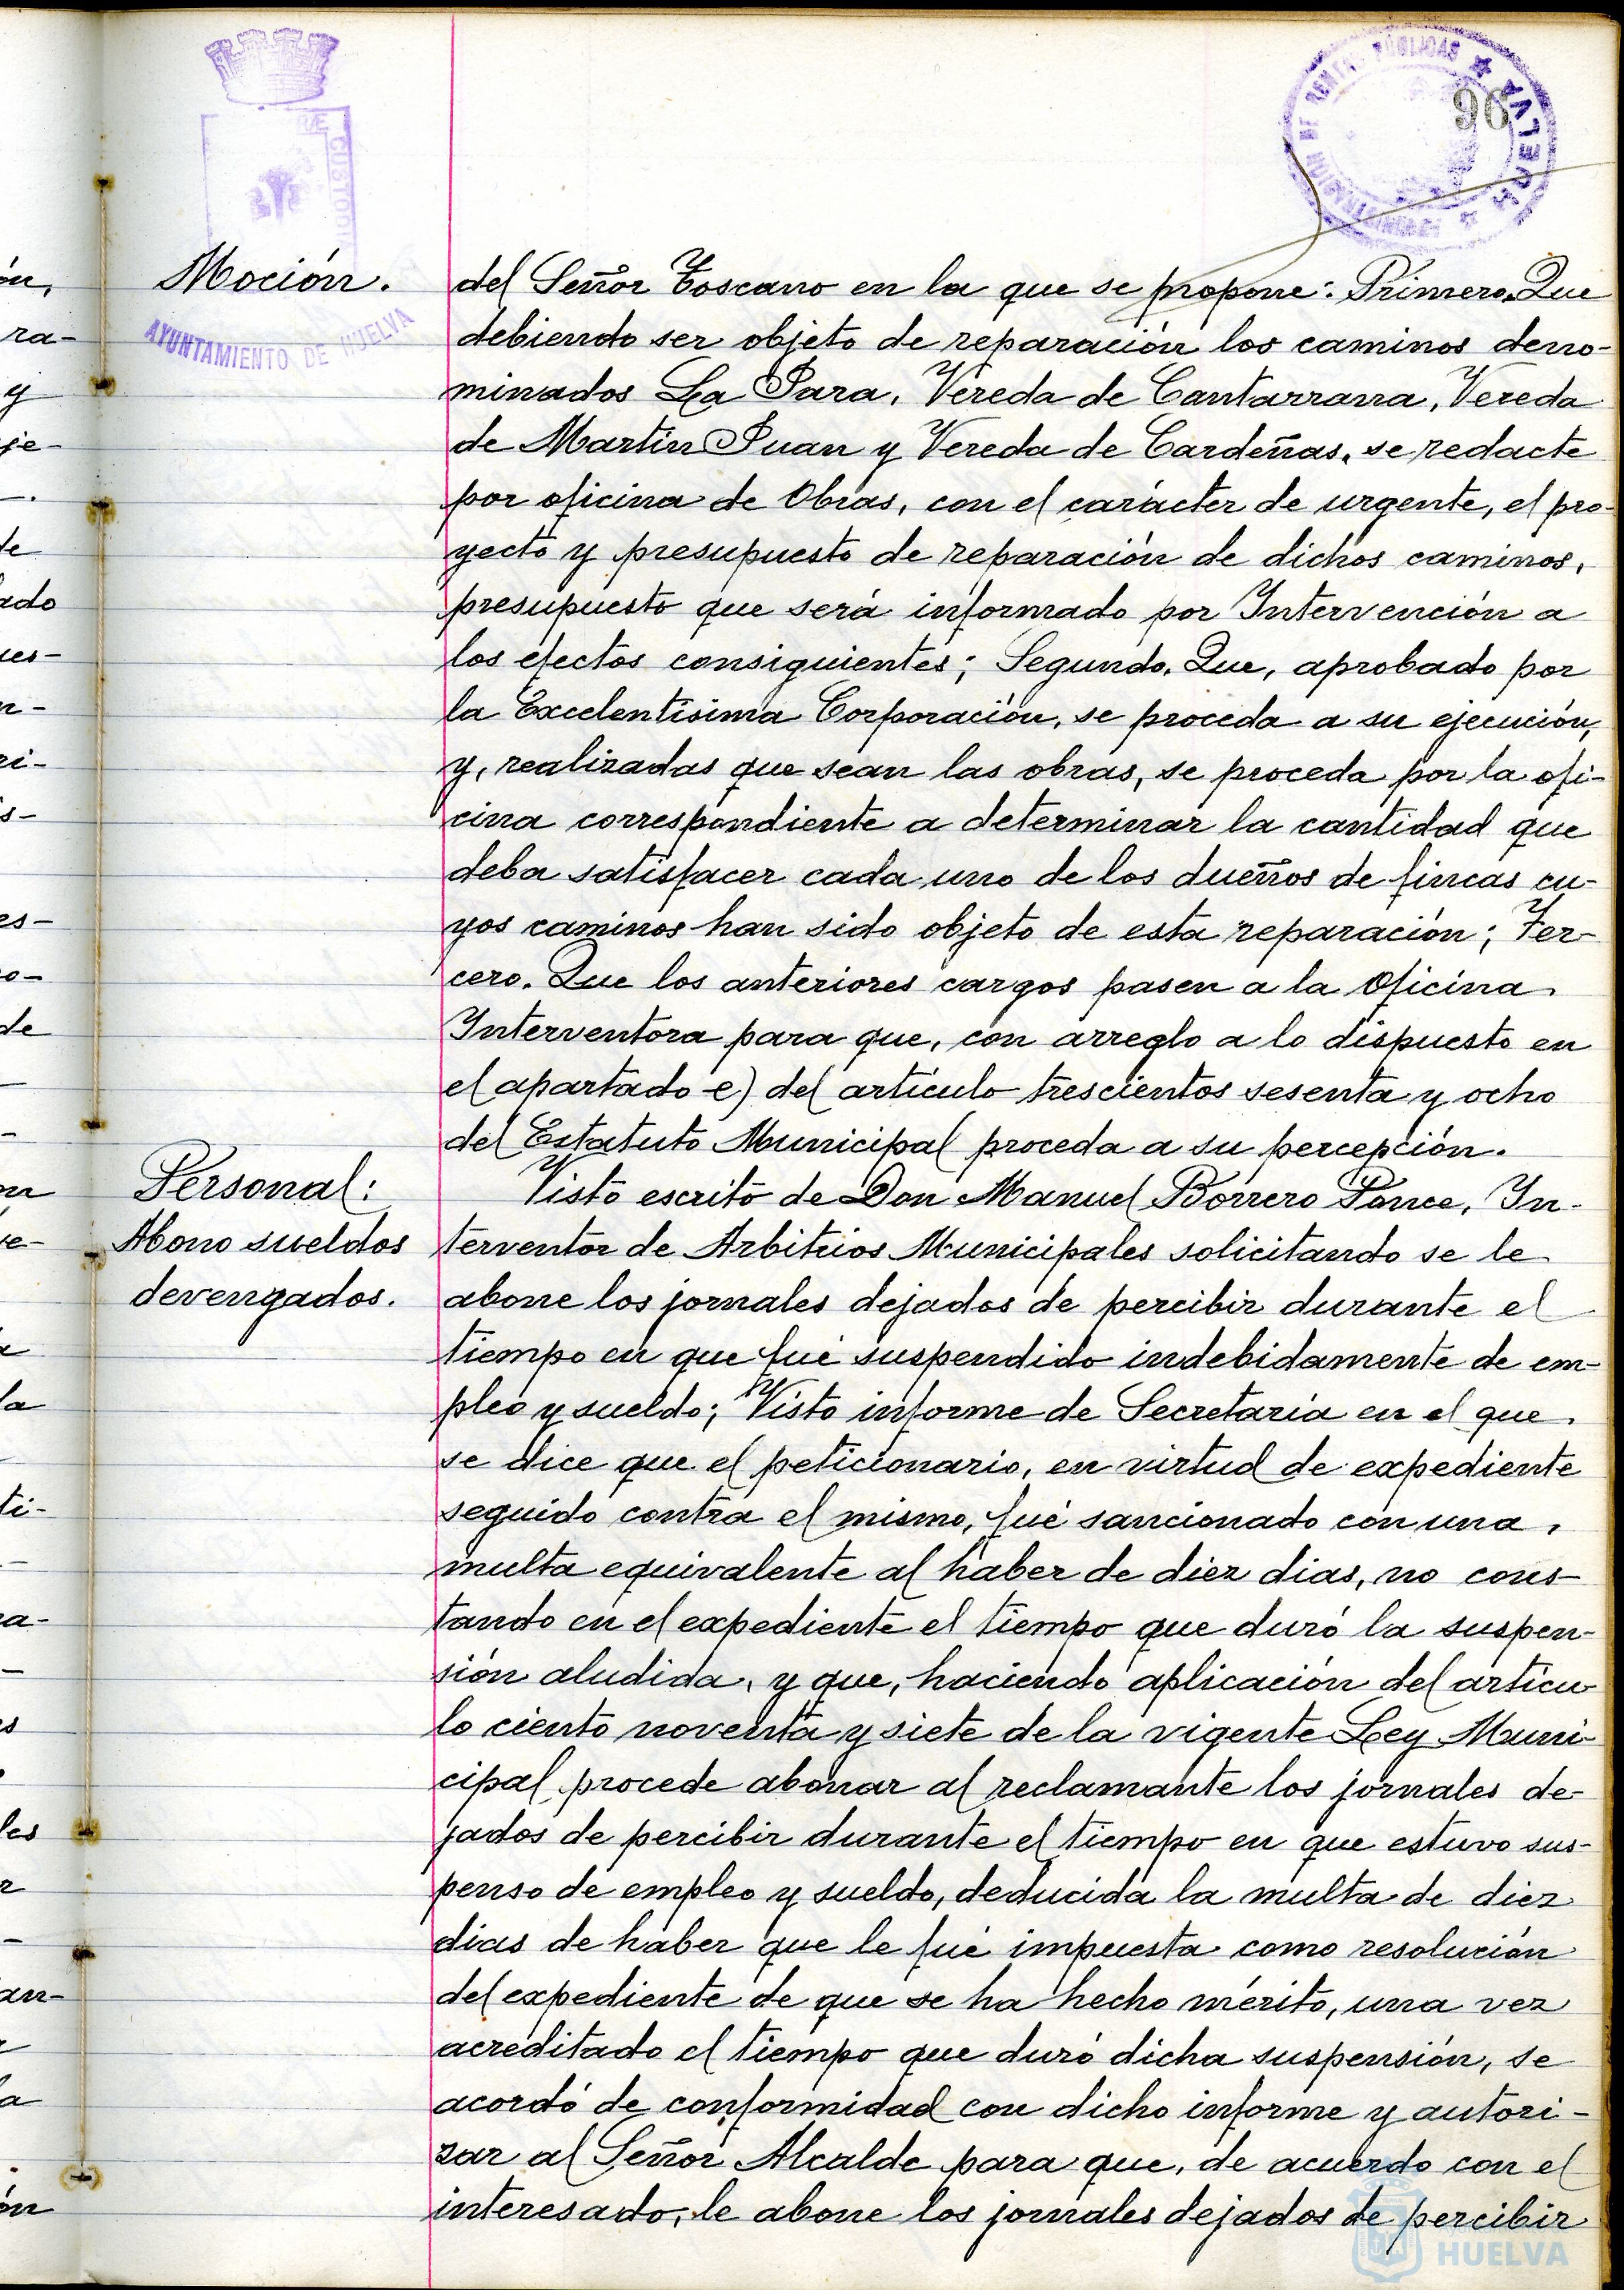 96
AYUNTAMIENTO DE HUELVA
Moción.
del Señor Toscano en la que se propone: Primero. Que
debiendo ser objeto de reparación los caminos deno-
minados La Para, Vereda de Cantarrana, Vereda
de Martin Juan y Vereda de Cardeñas, se redacte
por oficina de Obras, con el carácter de urgente, el pro-
yecto y presupuesto de reparación de dichos caminos,
presupuesto que será informado por Intervención a
los efectos consiguientes; Segundo. Que, aprobado por
la Excelentísima Corporación, se proceda a su ejecución,
y, realizadas que sean las obras, se proceda por la ofi-
cina correspondiente a determinar la cantidad que
deba satisfacer cada uno de los dueños de fincas cu-
yos caminos han sido objeto de esta reparación; Ter-
cero. Que los anteriores cargos pasen a la Oficina
Interventora para que, con arreglo a lo dispuesto en
el apartado e) del artículo trescientos sesenta y ocho
del Estatuto Municipal proceda a su percepción.
Personal:
Abono sueldos
devengados.
Visto escrito de Don Manuel Borrero Ponce, In-
terventor de Arbitrios Municipales solicitando se le
abone los jornales dejados de percibir durante el
tiempo en que fué suspendido indebidamente de em-
pleo y sueldo; Visto informe de Secretaría en el que
se dice que el peticionario, en virtud de expediente
seguido contra el mismo, fué sancionado con una
multa equivalente al haber de diez dias, no cons-
tando en el expediente el tiempo que duró la suspen-
sión aludida, y que, haciendo aplicación del artícu-
lo ciento noventa y siete de la vigente Ley Muni-
cipal, procede abonar al reclamante los jornales de-
jados de percibir durante el tiempo en que estuvo sus-
penso de empleo y sueldo, deducida la multa de diez
dias de haber que le fué impuesta como resolución
del expediente de que se ha hecho mérito, una vez
acreditado el tiempo que duró dicha suspensión, se
acordó de conformidad con dicho informe y autori-
zar al Señor Alcalde para que, de acuerdo con el
interesado, le abone los jornales dejados de percibir
HUELVA